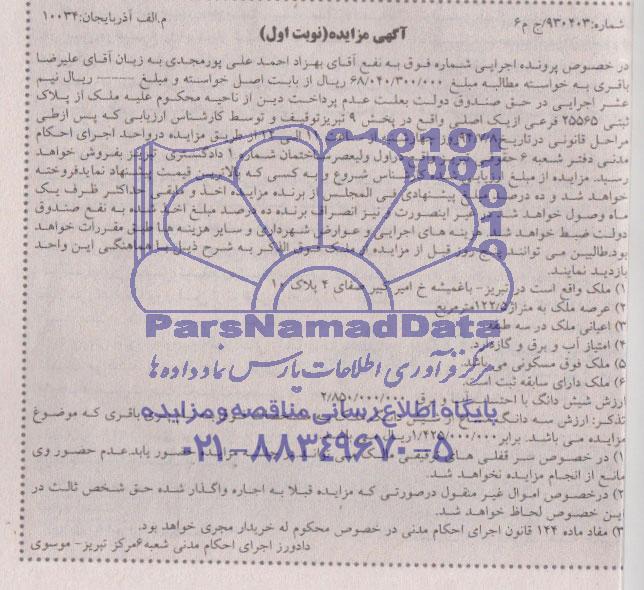 شماره:۹۳۰۴۰۳/ج م۶
م.الف آذربایجان:۱۰۰۳۴
آگهی مزایده(نوبت اول)
در خصوص پرونده اجرایی شماره فوق به نفع آقای بهزاد احمد علی پورمجدی به زیان آقای علیرضا
باقری به خواسته مطالبه مبلغ ۶۸/۰۴۰/۳۰۰/۰۰۰ ریال از بابت اصل خواسته و مبلغ ------- ریال نیم
عشر اجرایی در حق صندوق دولت بعلت عدم پرداخت دین از ناحیه محکوم علیه ملک از پلاک
ثبتی ۲۵۵۶۵ فرعی ازیک اصلی واقع در بخش ۹ تبریزتوقیف و توسط کارشناس ارزیابی که پس ازطی
مراحل قانونی درتاریخ از طریق مزایده درواحد اجرای احکام
مدنی دفتر شعبه ۶ اول ولیعصرساختمان شماره ۱ دادگستری تبریز بفروش خواهد
رسید. مزایده از مبلغ ارزیابی شروع و به کسی که قیمت پیشنهاد نمایدفروخته
خواهد شد و ده درصد پیشنهادی فی المجلس از برنده مزایده اخذ و مابقی حداکثر ظرف یک
ماه وصول خواهد شد اینصورت و نیز انصراف برنده ده درصد مبلغ اخذ شده به نفع صندوق
دولت ضبط خواهد شد هزینه های اجرایی و عوارض شهرداری و سایر هزینه ها طبق مقررات خواهد
بود.طالبین می توانند پنج روز قبل از مزایده از ملک فوق الذکر به شرح ذیل با هماهنگی این واحد
بازدید نمایند.
۱) ملک واقع است در تبریز- باغمیشه خ امیرکبیر صفای ۴ پلاک ۱۰
۲) عرصه ملک به متراژ۱۲۲/۵مترمربع
۳) اعیانی ملک در سه طبقه
۴) امتیاز آب و برق و گازدارد.
۵) ملک فوق مسکونی می باشد.
۶) ملک دارای سابقه ثبت است.
ارزش شیش دانگ با ۲/۸۵۰/۰۰۰/۰۰۰
تذکر: ارزش سه دانگ باقری که موضوع
مزایده می باشد. برابر۱/۴۲۵/۰۰۰/۰۰۰ریال
۱) در خصوص سر قفلی های حضور یابد.عدم حضور وی
مانع از انجام مزایده نخواهد شد.
۲) درخصوص اموال غیر منقول درصورتی که مزایده قبلا به اجاره واگذار شده حق شخص ثالث در
این خصوص لحاظ خواهد شد.
۳) مفاد ماده ۱۴۴ قانون اجرای احکام مدنی در خصوص محکوم له خریدار مجری خواهد بود.
دادورز اجرای احکام مدنی شعبه۶مرکز تبریز- موسوی
ParsNamadData
مرکز فرآوری اطلاعات پارس نماد داده ها
پایگاه اطلاع رسانی مناقصه و مزایده
۰۲۱-۸۸۳۴۹۶۷۰-۵